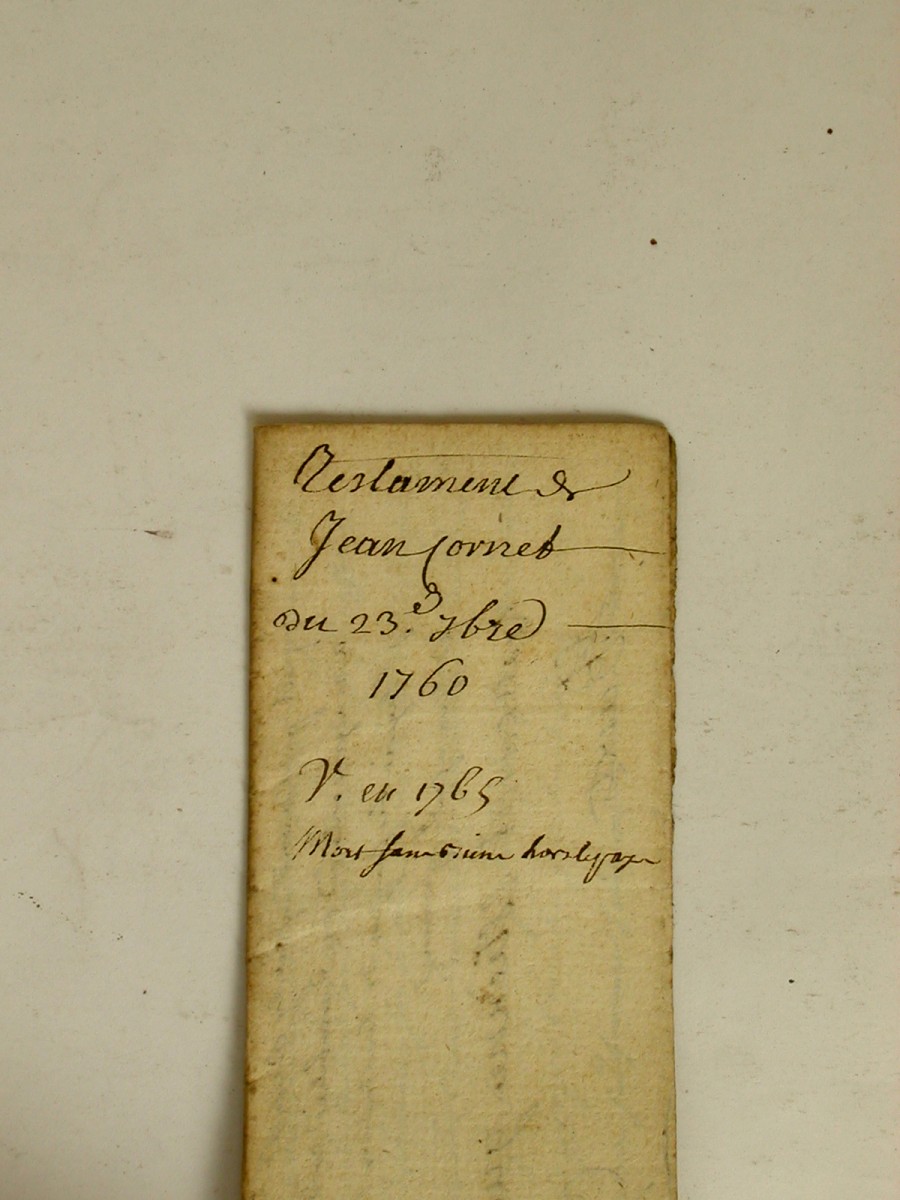 Testament de
Jean Cornet
du 23.e 7bre
1760
V. en 1765
Mort sans rien hors le pays